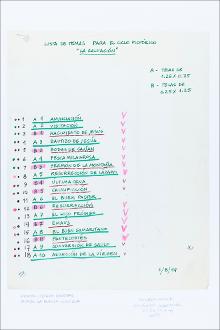 LISTA DE TEMAS PARA EL CICLO PICTÓRICO
"LA SALVACIÓN"
A - TELAS DE
1.25 x 0.75
B - TELAS DE
6.25 x 1.25
1 A 1 ANUNCIACIÓN
2 A 2 VISITACIÓN
3 B 1 NACIMIENTO DE JESÚS
4 A 3 BAUTIZO DE JESÚS
5 B 2 BODAS DE CANÁN
6 A 4 PESCA MILAGROSA
7 B 3 SERMÓN DE LA MONTAÑA
8 A 5 RESURRECCIÓN DE LÁZARO
9 B 4 ÚLTIMA CENA
10 A 5 CRUCIFIXIÓN
11 A 6 EL BUEN PASTOR
12 RESURRECCIÓN
13 A 7 EL HIJO PRÓDIGO
14 B 7 EMAÚS
15 A 8 EL BUEN SAMARITANO
16 PENTECOSTÉS
17 A 9 CONVERSIÓN DE SAULO
18 A 10 ASUNCIÓN DE LA VIRGEN